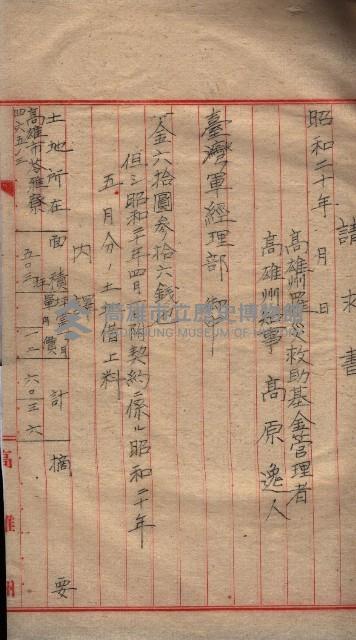 請求書
昭和二十年 月 日
高雄州罹災救助基金管理者
高雄州知事 高原逸人
臺灣軍經理部 御中
一金六拾圓參拾六錢
但シ昭和二十年四月 日附契約ニ係ル昭和二十年
五月分ノ土地借上料
內譯
土地所在 面積 坪當月價 計 摘要
高雄市苓雅寮四六五ノ三 五〇三坪 一二 六〇三六
高雄州
高雄市立歷史博物館
KAOHSIUNG MUSEUM OF HISTORY